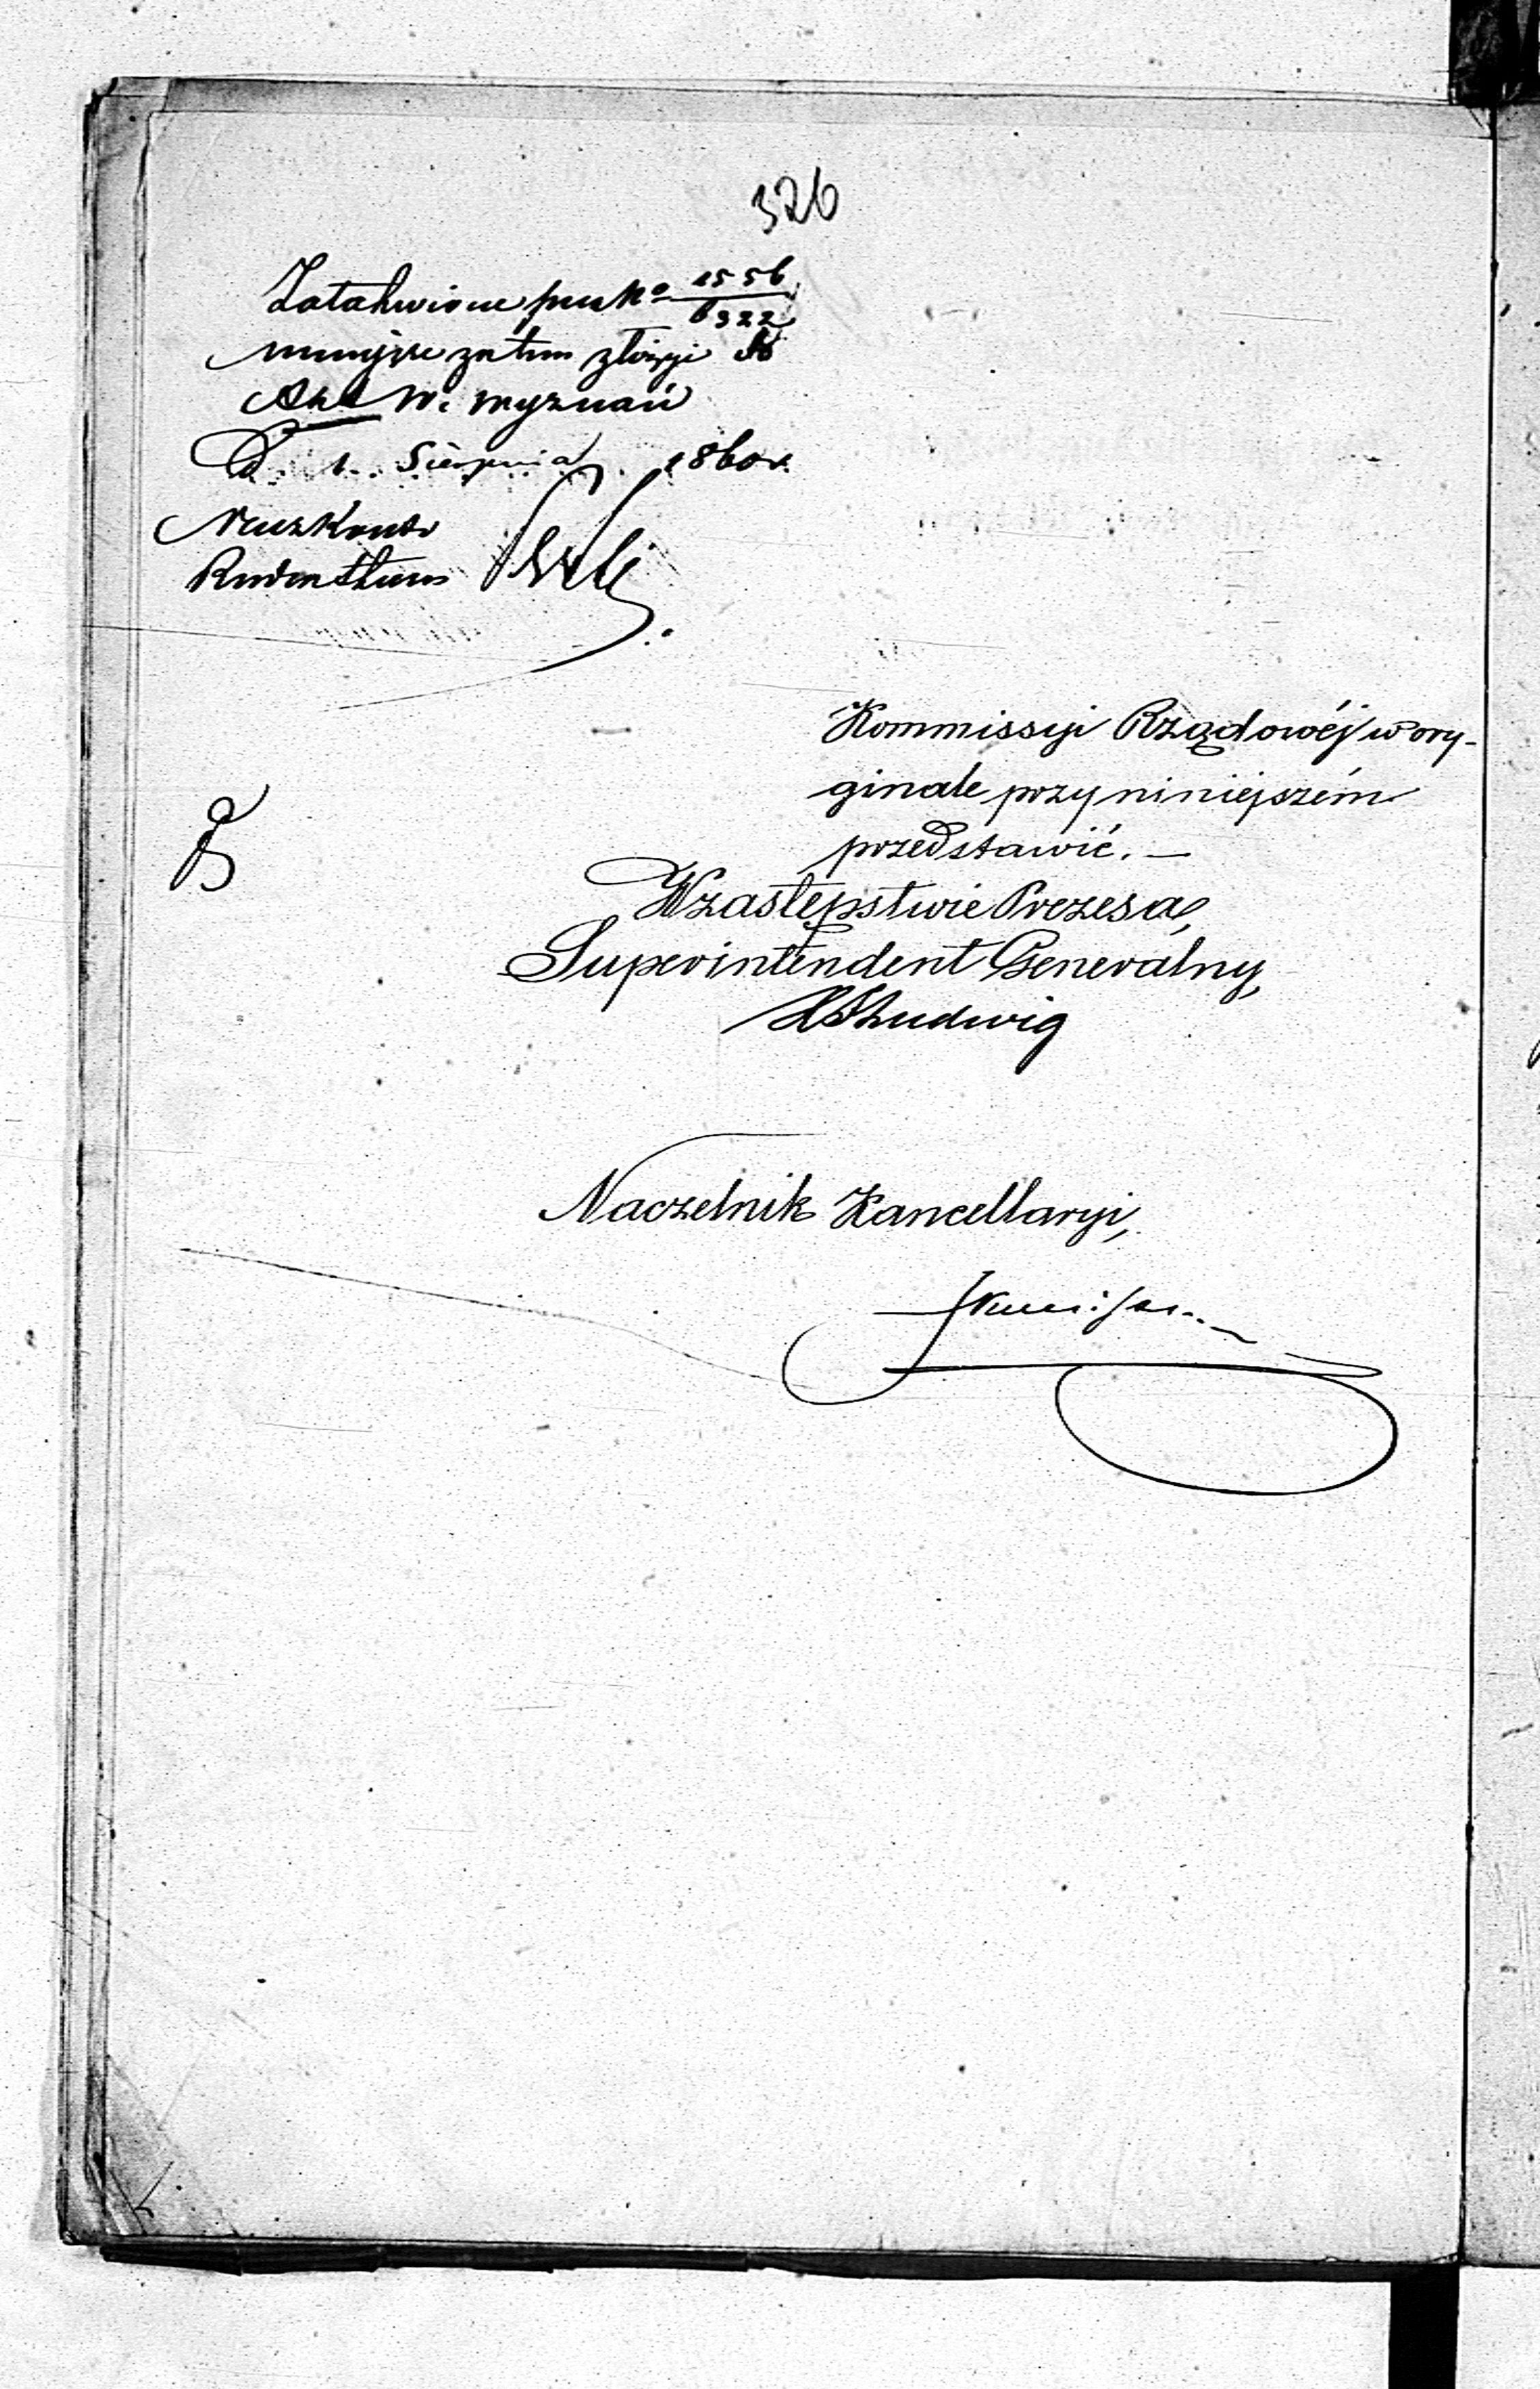 326
Załatwione pod No 1556/6322
niniejsze zatem złożyć do
Akt W. wyznań
D. 1. Sierpnia 1860 r.
Kommissyi Rządowéj w ory-
ginale przy niniejszém
przedstawić. —
W zastępstwie Prezesa,
Superintendent Generalny,
Ludwig
Naczelnik Kancellaryi,